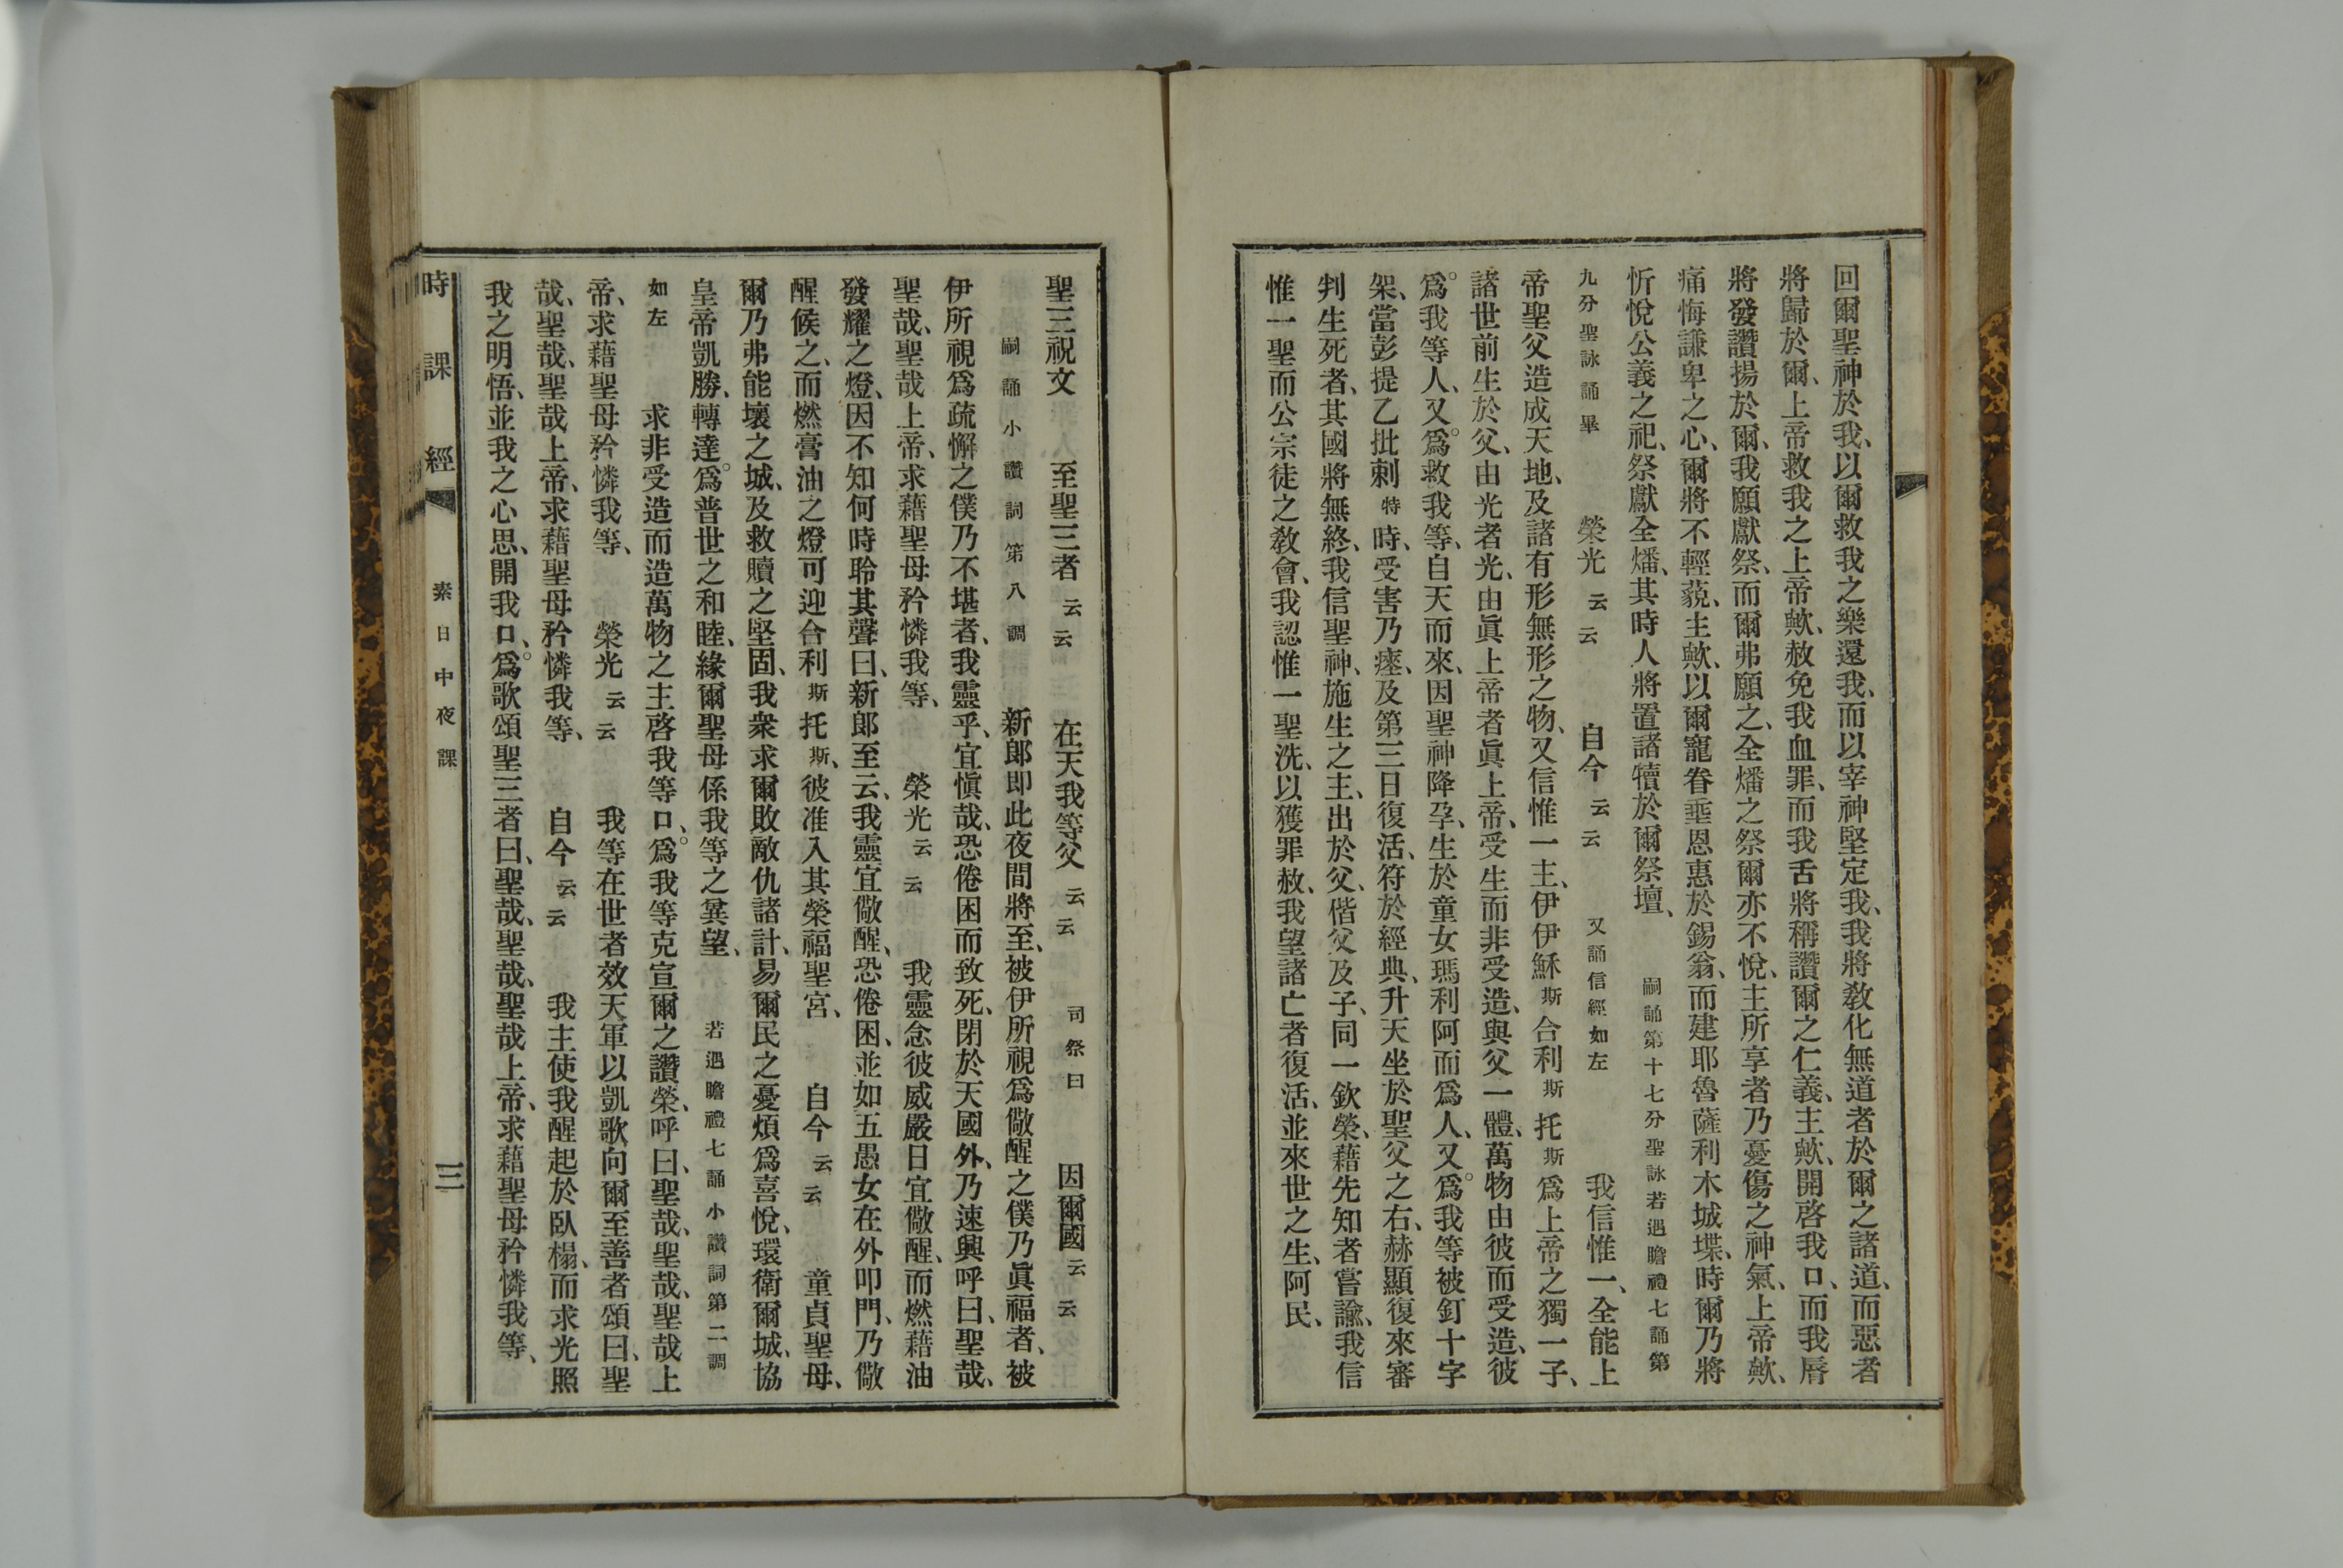 回爾聖神於我、以爾救我之樂還我、而以宰神堅定我、我將教化無道者於爾之諸道、而惡者
將歸於爾、上帝救我之上帝歟、赦免我血罪、而我舌將稱讚爾之仁義、主歟、開啓我口、而我唇
將發讚揚於爾、我願獻祭、而爾弗願之、全燔之祭爾亦不悅、主所享者乃憂傷之神氣、上帝歟、
痛悔謙卑之心、爾將不輕藐、主歟、以爾寵眷垂恩惠於錫翁、而建耶魯薩利木城堞、時爾乃將
忻悅公義之祀、祭獻全燔、其時人將置諸犢於爾祭壇、 嗣誦第十七分聖詠若遇瞻禮七誦第
九分聖詠誦畢 榮光云云 自今云云 又誦信經如左 我信惟一、全能上
帝聖父造成天地、及諸有形無形之物、又信惟一主、伊伊穌斯合利斯托斯爲上帝之獨一子、
諸世前生於父、由光者光、由眞上帝者眞上帝、受生而非受造、與父一體、萬物由彼而受造、彼
爲我等人、又爲救我等、自天而來、因聖神降孕、生於童女瑪利阿而爲人、又爲我等被釘十字
架、當彭提乙批刺特時、受害乃瘞、及第三日復活、符於經典、升天坐於聖父之右、赫顯復來審
判生死者、其國將無終、我信聖神、施生之主、出於父、偕父及子、同一欽榮、藉先知者嘗諭、我信
惟一聖而公宗徒之教會、我認惟一聖洗、以獲罪赦、我望諸亡者復活、並來世之生、阿民、
聖三祝文 至聖三者云云 在天我等父云云 司祭曰 因爾國云云
嗣誦小讚詞第八調 新郎即此夜間將至、被伊所視爲儆醒之僕乃眞福者、被
伊所視爲疏懈之僕乃不堪者、我靈乎、宜愼哉、恐倦困而致死、閉於天國外、乃速興呼曰、聖哉、
聖哉、聖哉上帝、求藉聖母矜憐我等、 榮光云云 我靈念彼威嚴日宜儆醒、而燃藉油
發耀之燈、因不知何時聆其聲曰、新郎至云、我靈宜儆醒、恐倦困、並如五愚女在外叩門、乃儆
醒候之、而燃膏油之燈可迎合利斯托斯、彼准入其榮福聖宮、 自今云云 童貞聖母、
爾乃弗能壞之城、及救贖之堅固、我衆求爾敗敵仇諸計、易爾民之憂煩爲喜悅、環衛爾城、協
皇帝凱勝、轉達爲普世之和睦、緣爾聖母係我等之冀望、 若遇瞻禮七誦小讚詞第二調
如左 求非受造而造萬物之主啓我等口、爲我等克宣爾之讚榮、呼曰、聖哉、聖哉、聖哉上
帝、求藉聖母矜憐我等、 榮光云云 我等在世者效天軍以凱歌向爾至善者頌曰、聖
哉、聖哉、聖哉上帝、求藉聖母矜憐我等、 自今云云 我主使我醒起於臥榻、而求光照
我之明悟、並我之心思、開我口、爲歌頌聖三者曰、聖哉、聖哉、聖哉上帝、求藉聖母矜憐我等、
時課經 素日中夜課 三